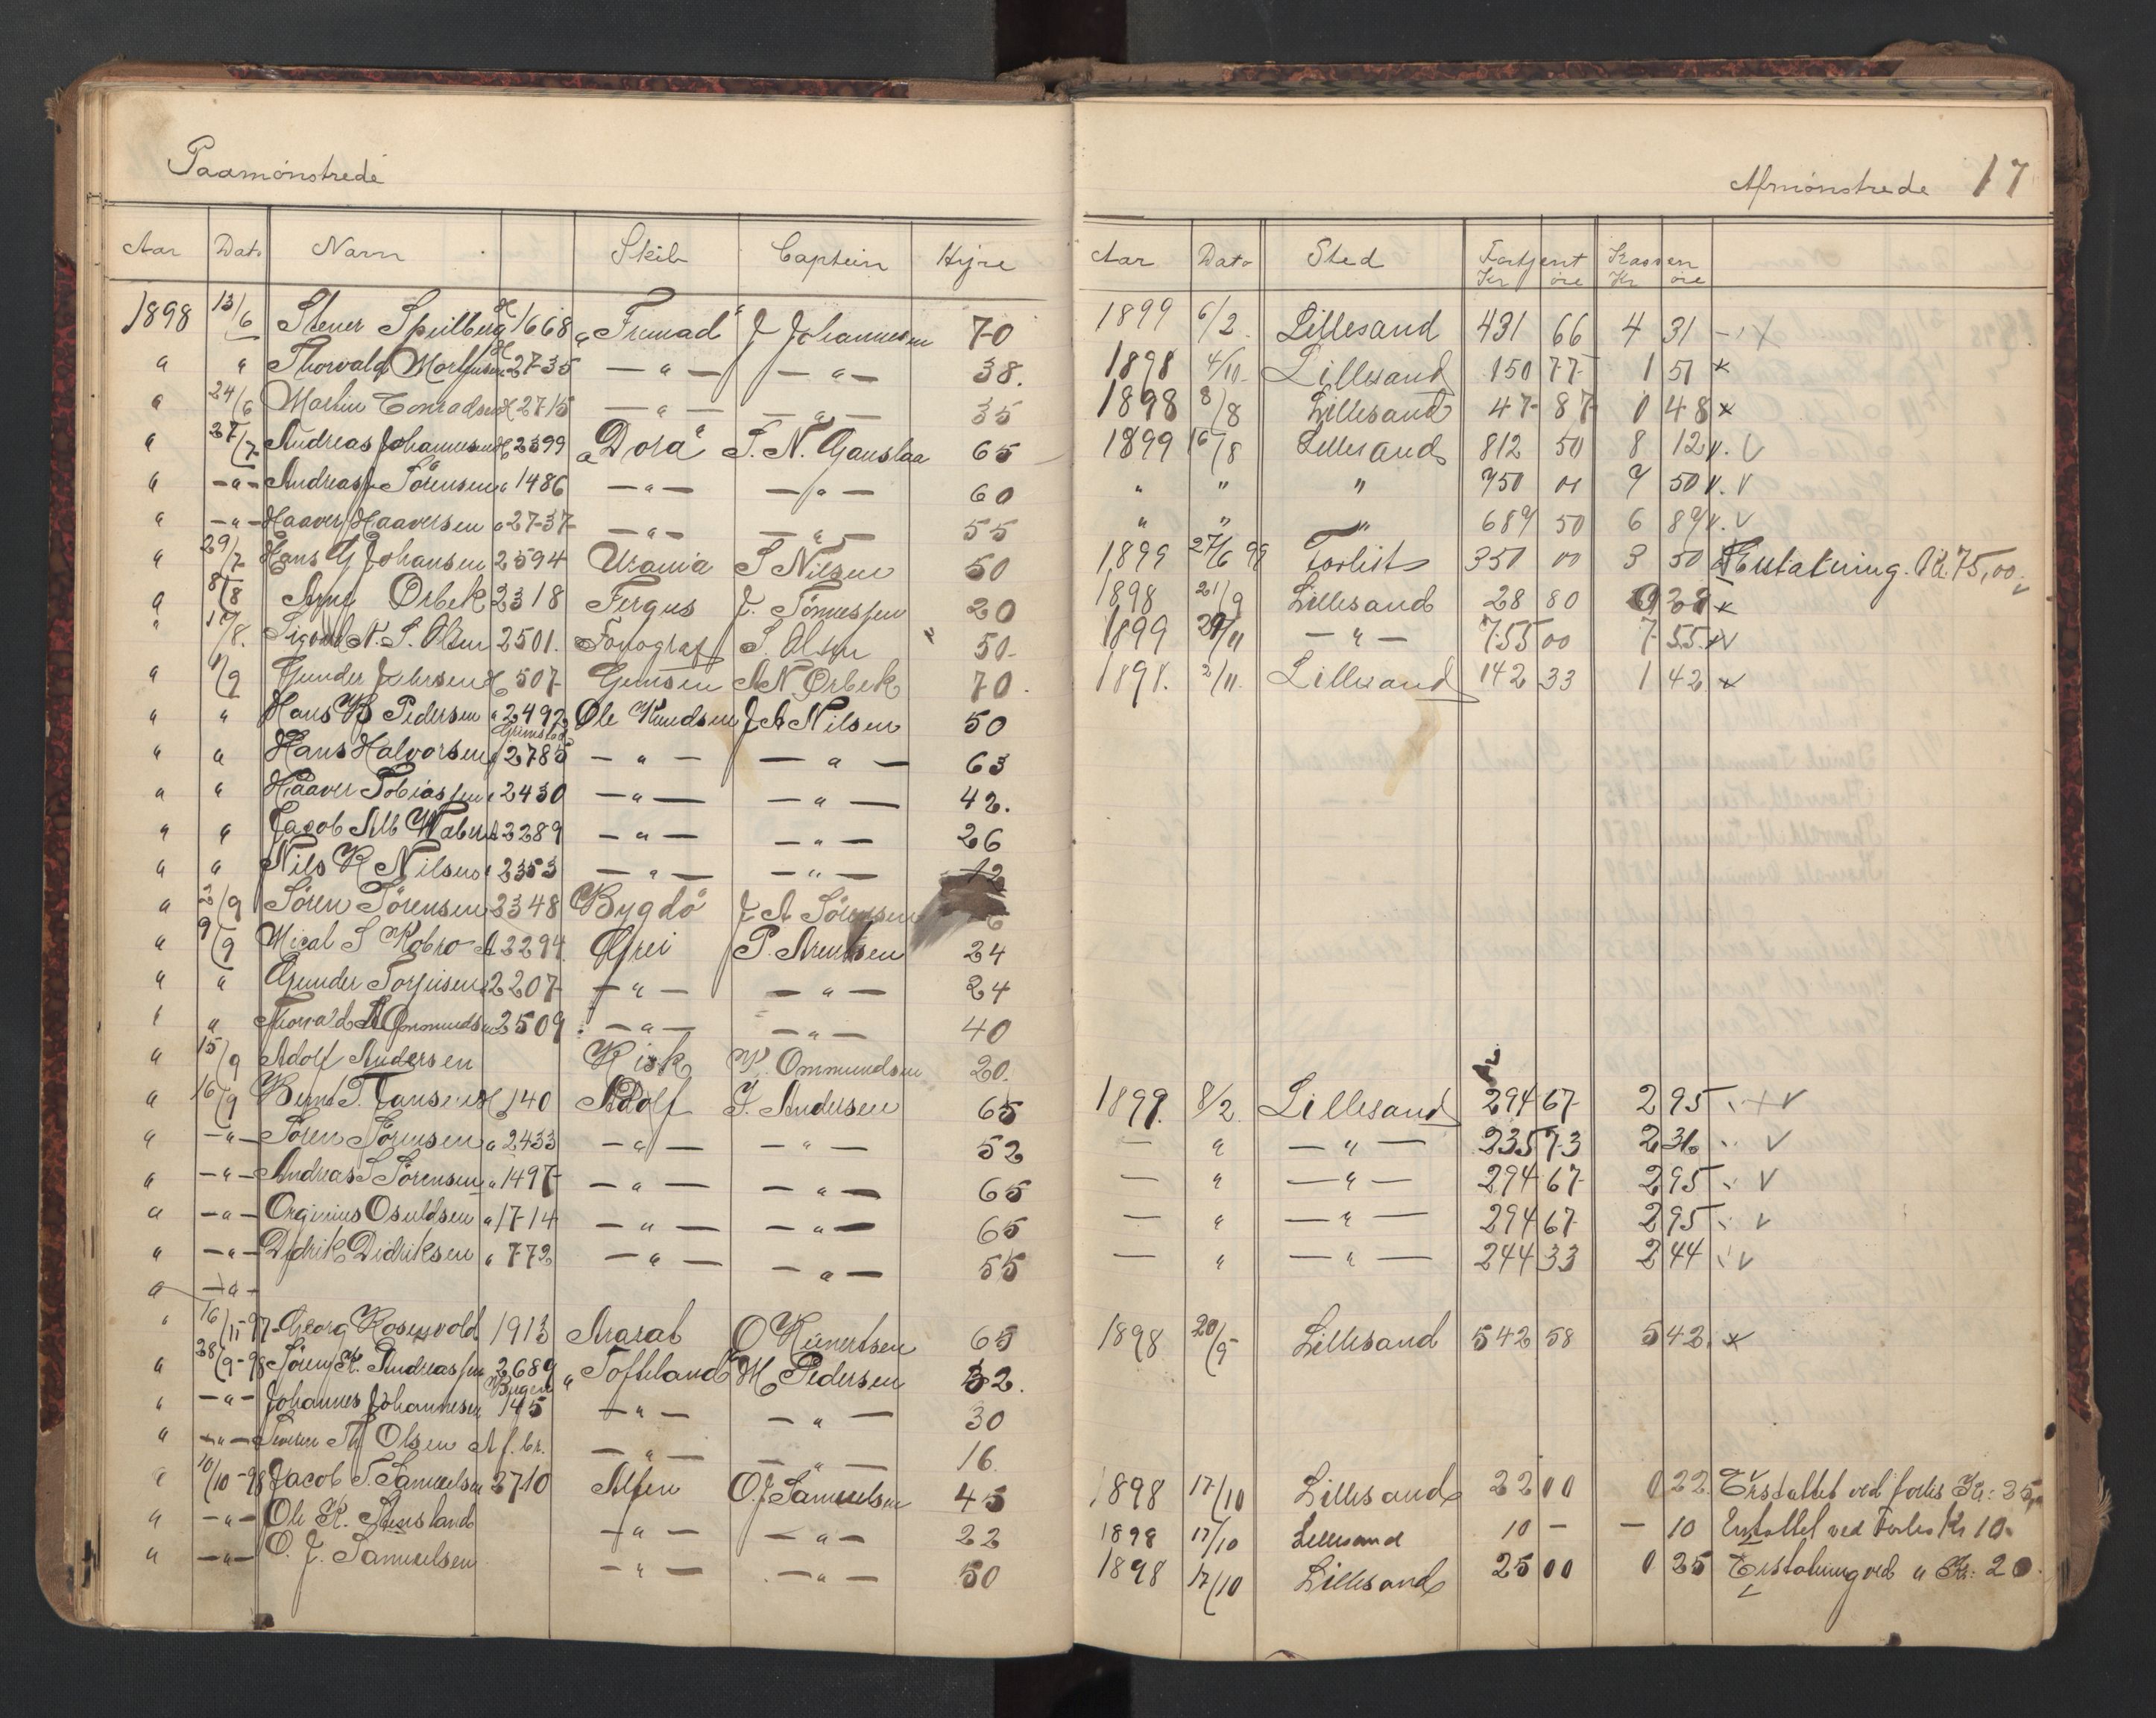 Paamönstrede
Aar Dato Navn Skib Captein Hyre
1898 13/6 Stener Speilberg H 1668 „Fremad" J Johannesen 70
" " Thorvald H 2735 — " — — " — 38.
" 24/6 Martin Conradsen H 2715 — " — — " — 35
" 27/7 Andreas Johannesen H 2399 „Dora" S. N. Gauslaa 65
" — " — Andreas Sörensen " 1486 — " — — " — 60
" — " — Haaver Haaversen " 2737 — " — — " — 55
" 29/7 Hans G Johansen 2594 Urania S Nilsen 50
" 8/8 Arne Örbek 2318 Fergus J. Tönnessen 20
" 17/8. N. S. Olsen 2501. Fonograf S. Olsen 50-
" 1/9 Gunder H 507 Gemsen A N Örbek 70.
" " Hans B Pedersen " 2492 Ole Knudsen J A Nilsen 50
" " Hans Halvorsen Grimstad 2785 — " — — " — 63
" " Haaver Tobiassen " 2430 — " — — " — 42.
" " Jacob Alb 2289 — " — — " — 26
" " Nils K Nilsen " 2353 — " — — " — 12
" 2/9 Sören Sörensen 2348 Bygdö J A Sörensen
" 9/9 Mical S Kobro A 2294. Grei P. Arentsen 24
" " Gunder Torjusen 2207 — " — — " — 24
" " Thorvald Ommunds 2509 — " — — " — 40
" 15/9 Adolf Andersen Risk K. Ommundsen 20.
" 16/9 Bernt T. Jansen H 140 Adolf J. Andersen 65
" — " — Sören Sörensen " 2433 — " — — " — 52
" — " — Andreas S Sörensen " 1497 — " — — " — 65
" — " — Orginius Osuldsen " 1714 — " — — " — 65
" — " — Didrik Didriksen " 772 — " — — " — 55
" — " —
" 16/11-97 Georg Rosenvold 1913 Ararat O Kenertsen 65
" 28/9-98 Sören K. Andreassen 2689 „Tofteland" H Pedersen 32.
" — " — Johannes Johannesen 145 — " — — " — 30
" — " — Severin Th Olsen A f. br. — " — — " — 16.
" 10/10-98 Jacob T. Samuelsen 2710 Alfen O. J Samuelsen 45
" — " — Ole K. Stensland — " — — " — 22
" — " — O. J. Samuelsen — " — — " — 50
Afmönstrede 17
Aar Dato Sted Fortjent Kr öre Kassen Kr öre
1899 6/2 Lillesand 431 66 4 31
1898 4/11. Lillesand 150 77 1 51 x
1898 8/8 Lillesand 47 87 0 48 x
1899 16/8 Lillesand 812 50 8 12 v. v
" " " 950 00 9 50 v. v
" " " 689 50 6 89 v. v
1899 27/6 99 Forlist 350 00 3 50 Erstatning. Kr 75,00
1898 21/9 Lillesand 28 80 0 28 x
1899 29/11 — " — 755 00 7 55 v
1898. 2/11. Lillesand 142 33 1 42 x
1899. 8/2. Lillesand 294 67 2 95 v
— " — " — 235 73 2 36 v
— " — " — 294 67 2 95 v
— " — " — 294 67 2 95 v
— " — " — 244 33 2 44 v
1898 20/9 Lillesand 542 58 5 42. x
1898 17/10 Lillesand 22 00 0 22 Erstattet ved forlis Kr: 35,
1898 17/10 Lillesand 10 — — 10 Erstattet ved Forlis Kr 10-
1898 17/10 Lillesand 25 00 0 25 Erstatning ved " Kr: 20.